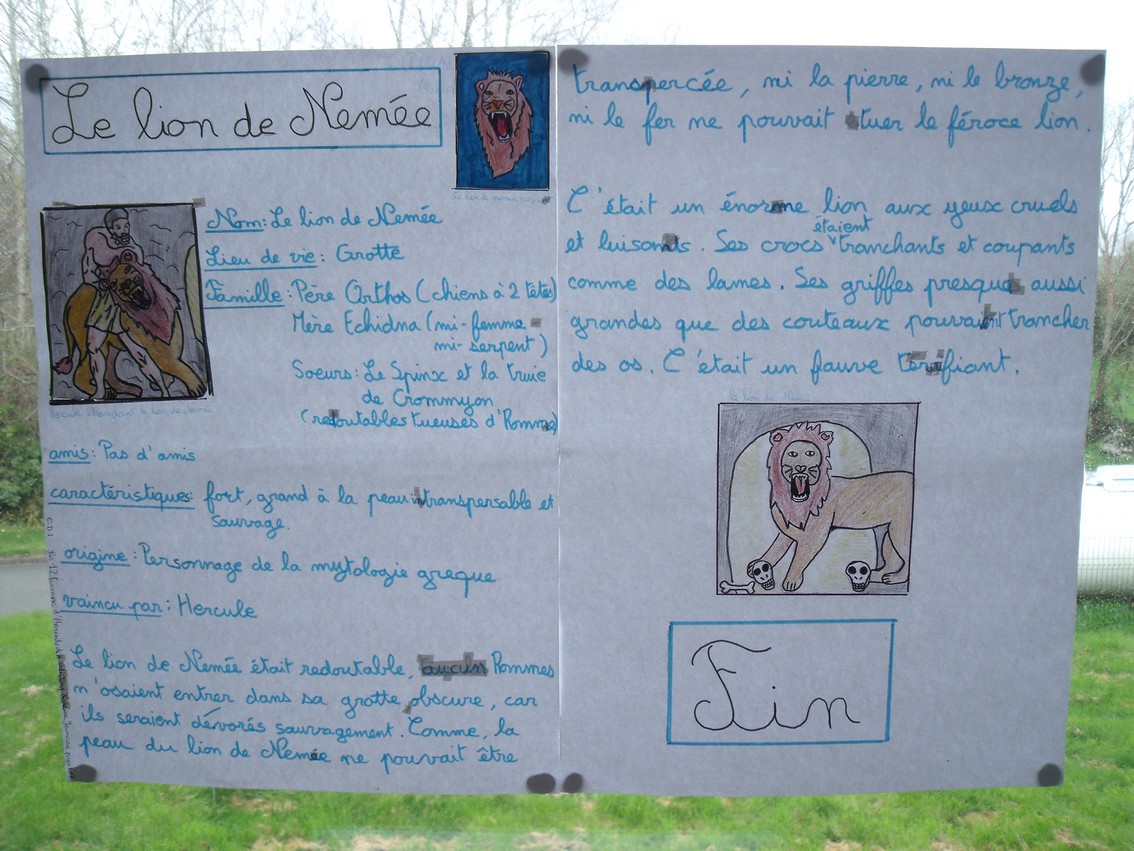 Le lion de Nemée
Nom: Le lion de Nemée
Lieu de vie: Grotte
Famille: Père Orthos (chiens à 2 têtes)
Mère Echidna (mi-femme
mi-serpent)
Soeurs: Le Spinx et la truie
de Crommyon
(redoutables tueuses d'Homme)
Hercule étranglant le lion de Nemée
amis: Pas d'amis
caractéristiques: fort, grand à la peau intranspersable et
sauvage.
origine: Personnage de la mytologie greque
vaincu par: Hercule
Le lion de Nemée était redoutable, aucun Hommes
n'osaient entrer dans sa grotte obscure, car
ils seraient dévorés sauvagement. Comme, la
peau du lion de Nemée ne pouvait être
transpercée, ni la pierre, ni le bronze,
ni le fer ne pouvait tuer le féroce lion.
C'était un énorme lion aux yeux cruels
et luisants. Ses crocs étaient tranchants et coupants
comme des lames. Ses griffes presque aussi
grandes que des couteaux pouvaient trancher
des os. C'était un fauve terrifiant.
Le lion de Nemée
Fin